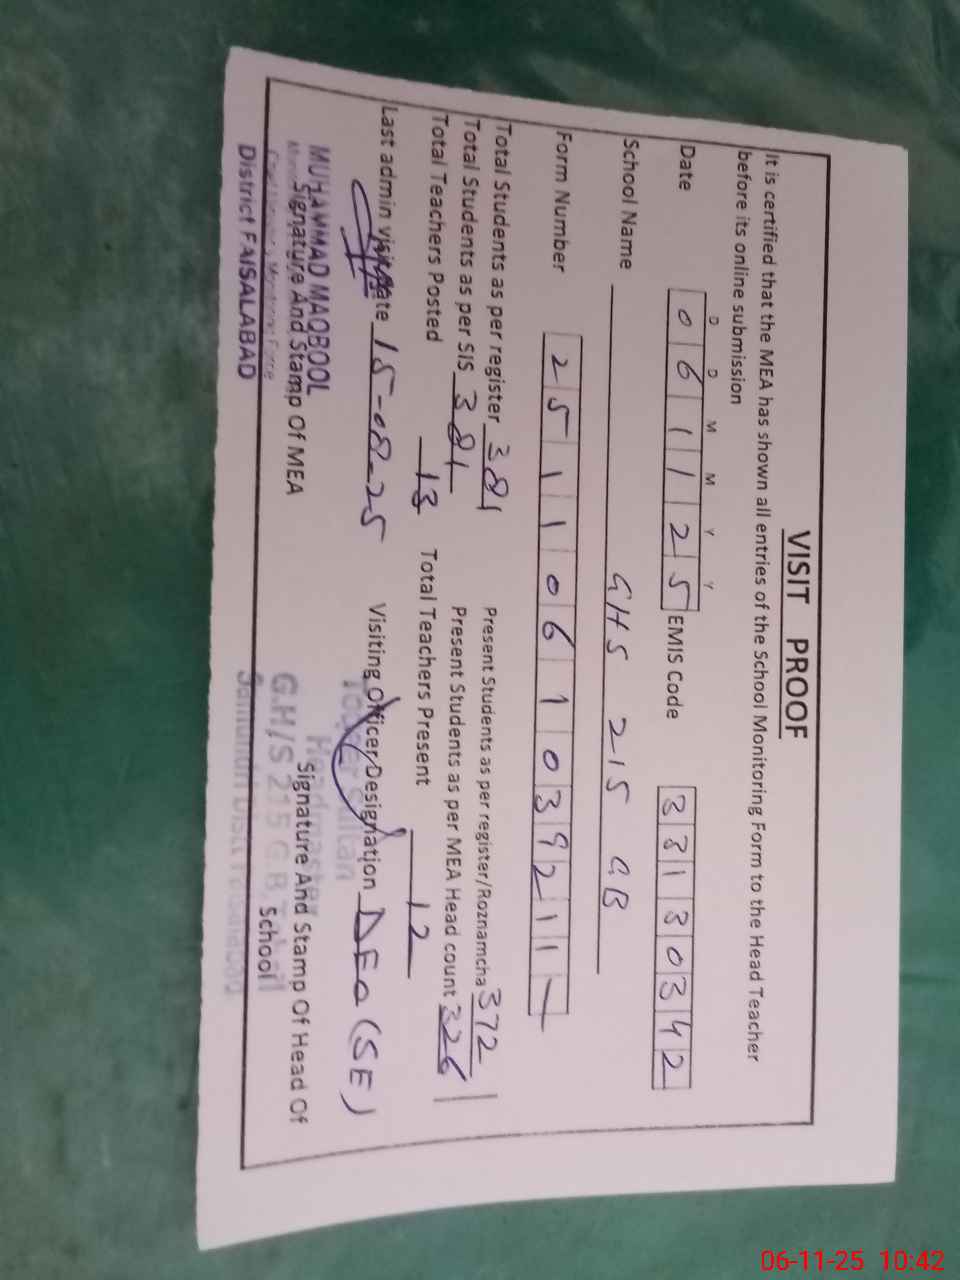 VISIT PROOF
It is certified that the MEA has shown all entries of the School Monitoring Form to the Head Teacher
before its online submission
D D M M Y Y
Date 0 6 1 1 2 5 EMIS Code 3 3 1 3 0 3 4 2
School Name GHS 215 GB
Form Number 2 5 1 1 0 6 1 0 3 9 2 1 1
Total Students as per register 381 Present Students as per register/Roznamcha 372
Total Students as per SIS 381 Present Students as per MEA Head count 326
Total Teachers Posted 13 Total Teachers Present 12
Last admin visit date 15-08-25 Visiting Officer/Designation DEO (SE)
MUHAMMAD MAQBOOL
Signature And Stamp Of MEA
District FAISALABAD
Headmaster
Signature And Stamp Of Head Of
School
G.H/S 215 G.B.
06-11-25 10:42